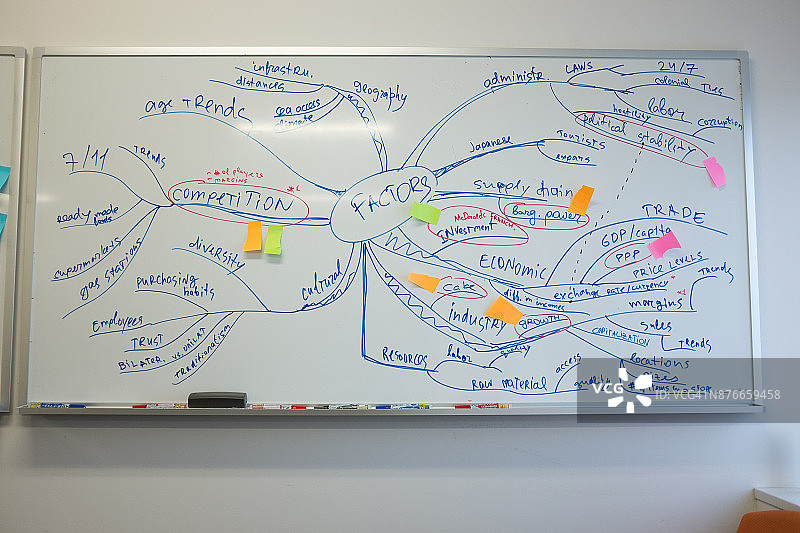 infrastru.
distances
sea access
climate
geography
age TRENDS
administr.
LAWS
24/7
colonial TIES
hostility
labor
corruption
political stability
Japanese
Tourists
expats
FACTORS
7/11
TRENDS
# of players
MARGINS
COMPETITION
ready made
supermarkets
gas stations
supply chain
Barg. power
McDonalds FRANCH.
INVESTMENT
TRADE
GDP/capita
PPP
PRICE LEVELS
ECONOMIC
diff. in incomes
exchange RATE/currency
Trends
margins
diversity
purchasing
habits
cultural
Employees
TRUST
BILATER. vs. UNILAT
TRADITIONALISM
Cake
industry
GROWTH
CAPITALIZATION
sales
TRENDS
locations
sizes
RESOURCES
labor
quality
RAW MATERIAL
access
VCG
VCG.COM
ID: VCG41N876659458